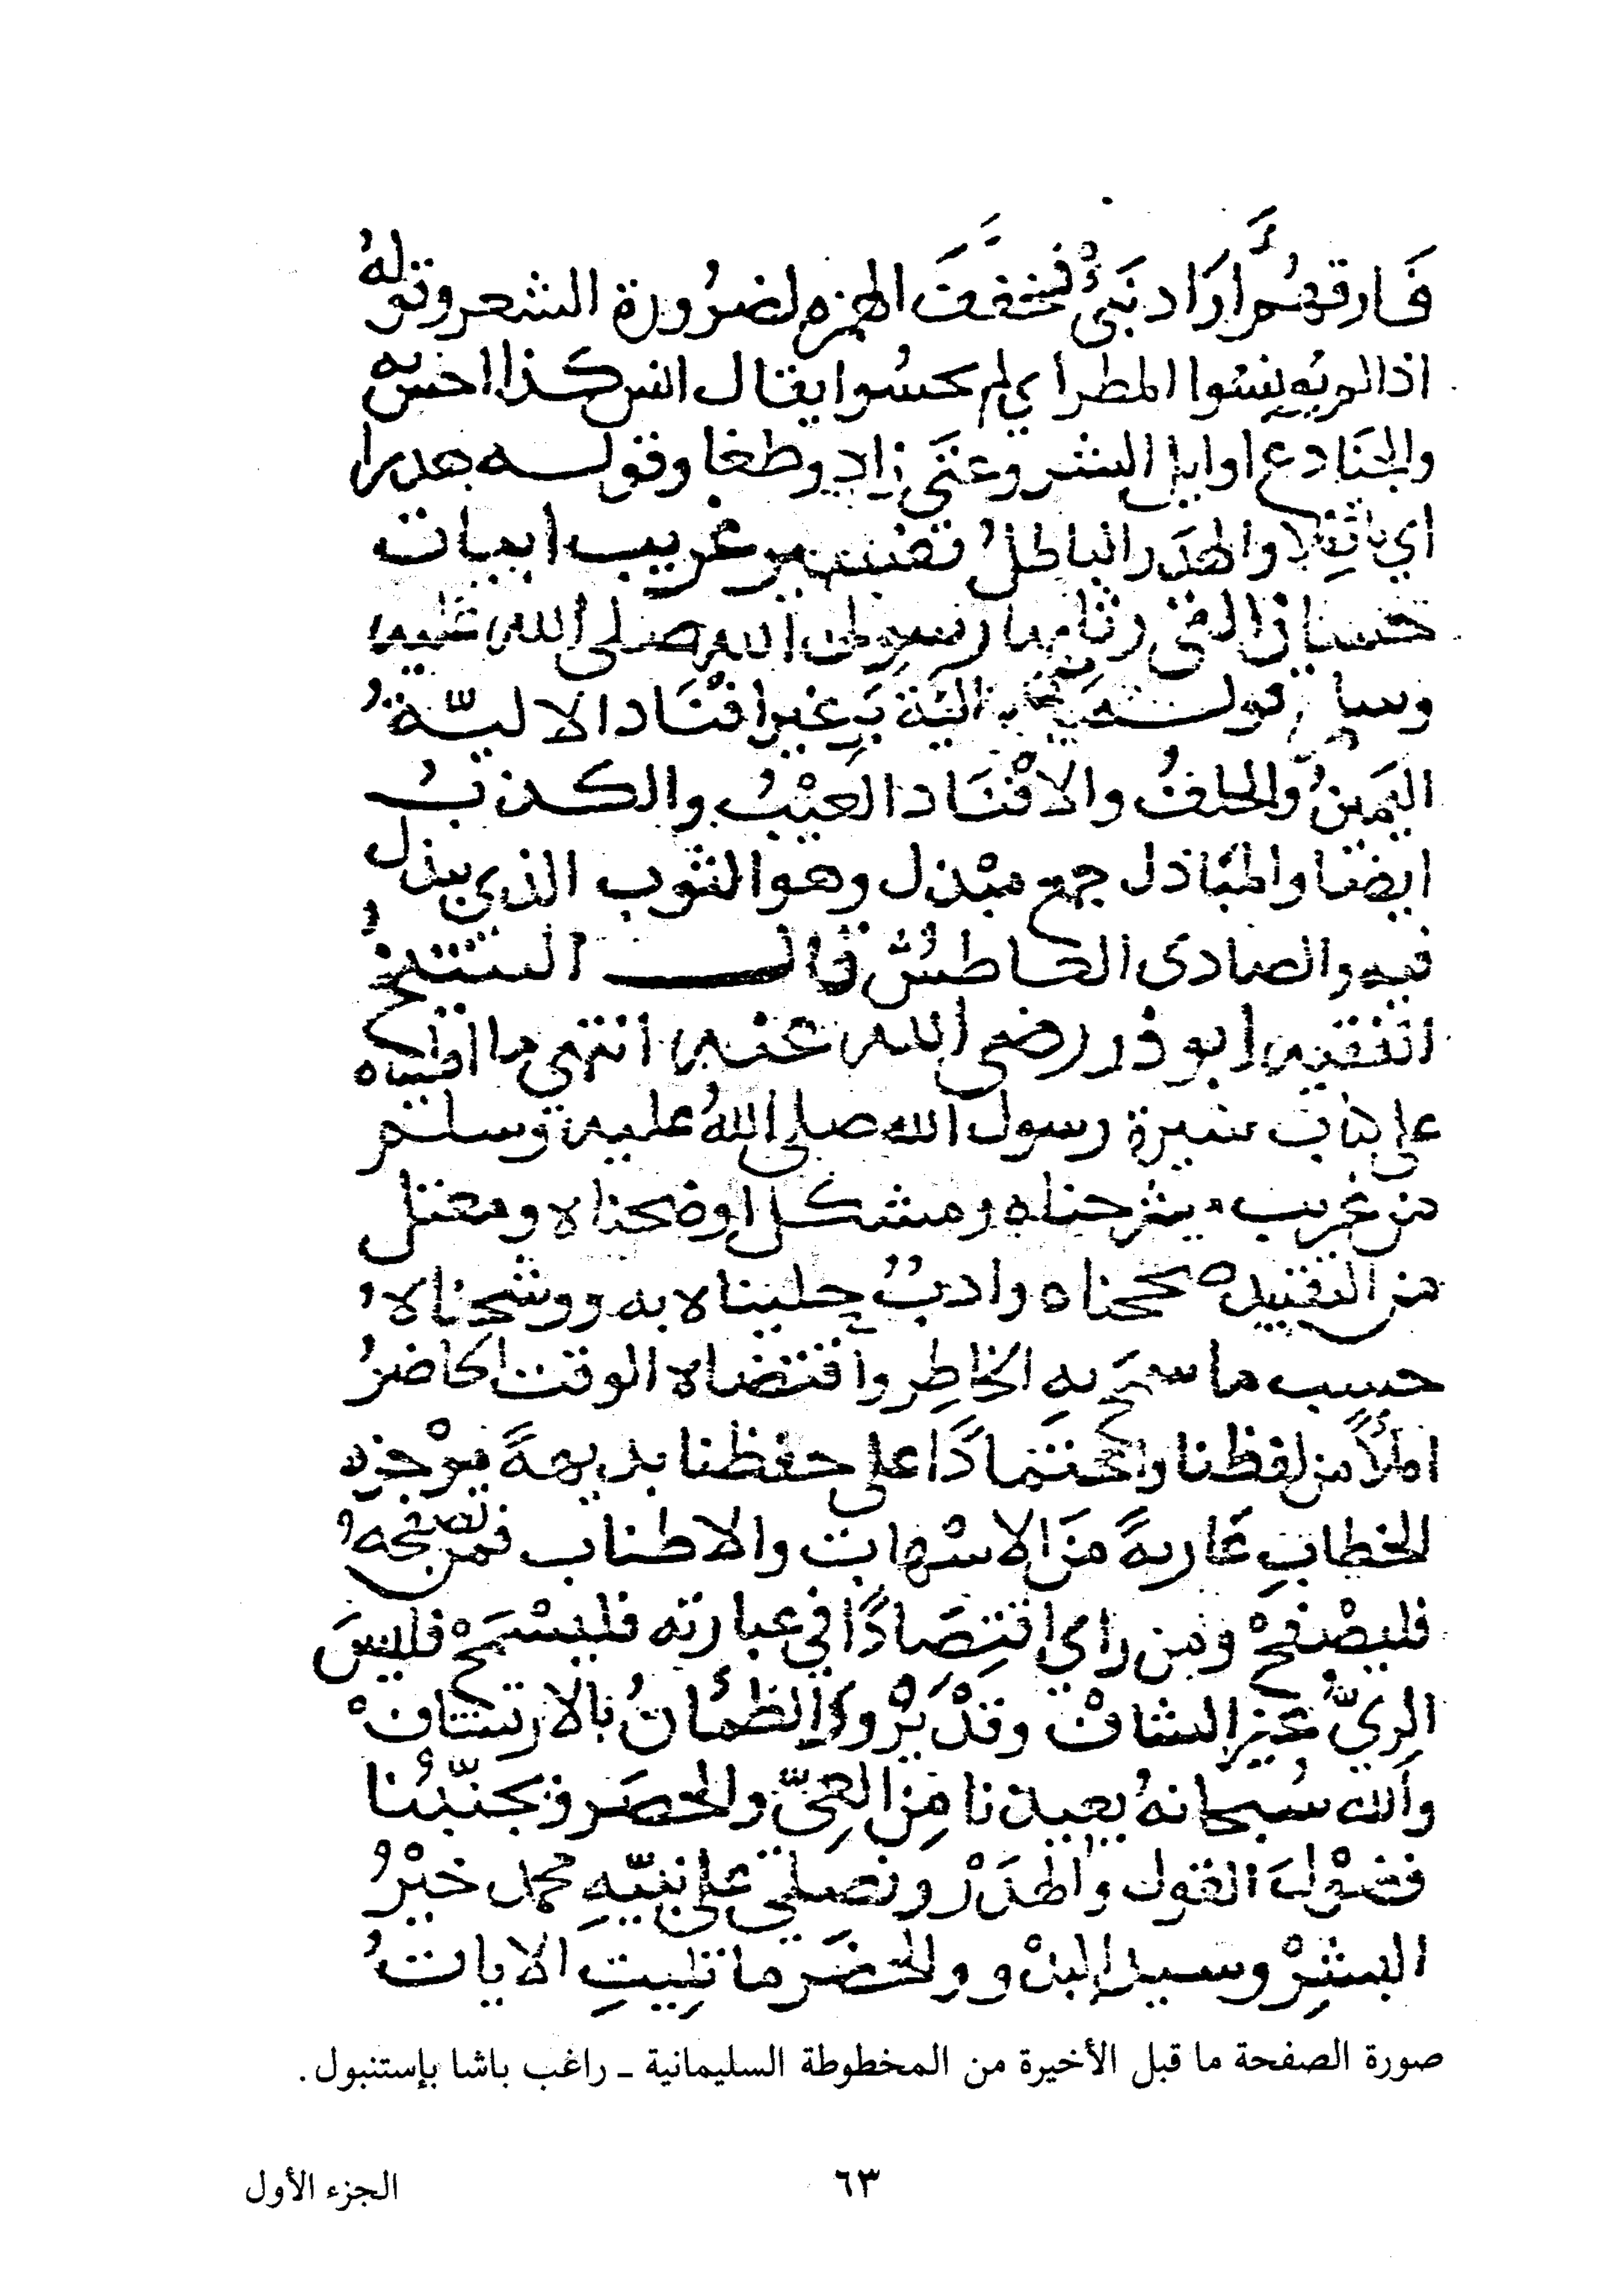 فَارقهُم أرَاد نَبيٌّ فخفّفَ الهمزه لضرُورة الشعر وقولهُ
اذا لم يونسوا المطر اي لم يحسُوا يقال انس كذا احس به
والجنَادع اوايل الشر وعتَى زاد وطغا وقوله هدرا
اي باطلا والهدَر الباطلُ تفسير غريب ابيات
حسان التي رثا بها رسول الله صلى الله عليه
وسلم قوله الِيَّة بَرٍ غير افنَاد الاليّةُ
اليَمينُ والحلفُ والافْنَاد العيْبُ والكذبُ
ايضا والمبَاذل جمع مبْذل وهو الثوب الذي يبذل
فيه والصادي العاطشُ قال الشيخُ
الفقيه ابو ذر رضي الله عنه انتهى ما املیناه
على كتاب سيرة رسول الله صلى اللهُ عليه وسلم
من غريب شرحناه ومشكل اوضحناه ومغفل
من التقييد صححناه وادبٌ حليناه به ووشحناه
حسب ما سمحَ بهِ الخاطِر واقتضاه الوقت الحاضرُ
املاً من لفظنا واعتمادًا على حفظنا بديهةً موْجزه
الخطابِ عَاريةً منَ الاسْهاب والاطناب فمن تصفحهُ
فليصْفحْ ومن راى اقتِصَادًا في عبارته فليسْمَحْ فليسَ
الرِيُّ عن التشافْ وقدْ يَرْوَى الظمْأنُ بالارتشافْ
وَالله سُبحانهُ يعيذنا مِنَ العِيّ والحصَر ويجنّبُنا
فضُوْلَ القول والهَدَرْ ونصلي على نبيّهِ محمد خيْرُ
البشرِْ وسيد البدْو والحَضَر ما تليتِ الاياتُ
صورة الصفحة ما قبل الأخيرة من المخطوطة السليمانية ـ راغب باشا بإستنبول .
٦٣
الجزء الأول